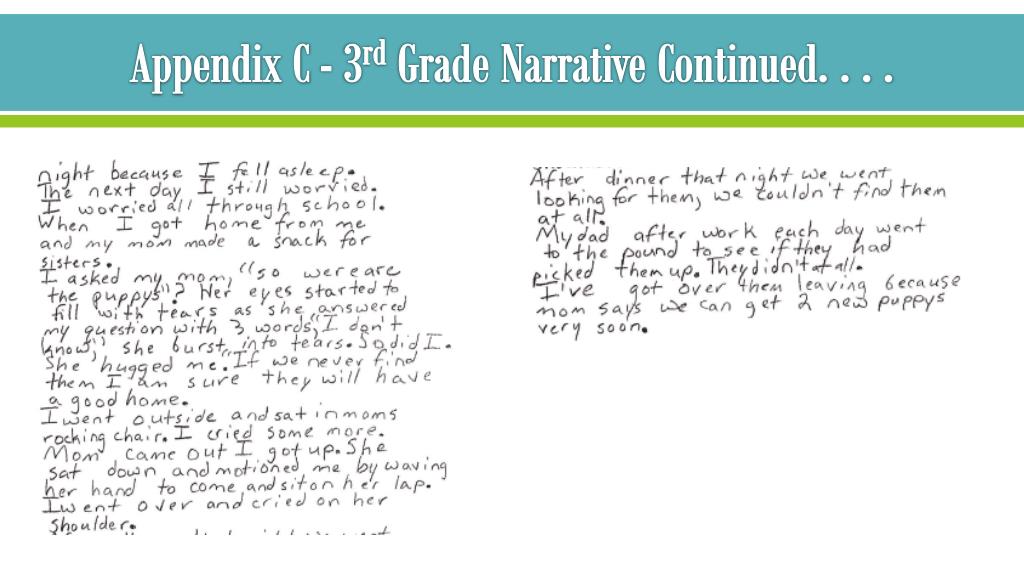 Appendix C - 3rd Grade Narrative Continued. . . .
night because I fell asleep.
The next day I still worried.
I worried all through school.
When I got home from me
and my mom made a snack for
sisters.
I asked my mom, "so wereare
the puppys"? Her eyes started to
fill with tears as she answered
my question with 3 words, "I don't
know," she burst into tears. So did I.
She hugged me. "If we never find
them I am sure they will have
a good home.
I went outside and sat in moms
rocking chair. I cried some more.
Mom came out I got up. She
sat down and motioned me by waving
her hand to come and sit on her lap.
I went over and cried on her
shoulder.
After dinner that night we went
looking for them, we couldn't find them
at all.
My dad after work each day went
to the pound to see if they had
picked them up. They didn't at all.
I've got over them leaving because
mom says we can get 2 new puppys
very soon.